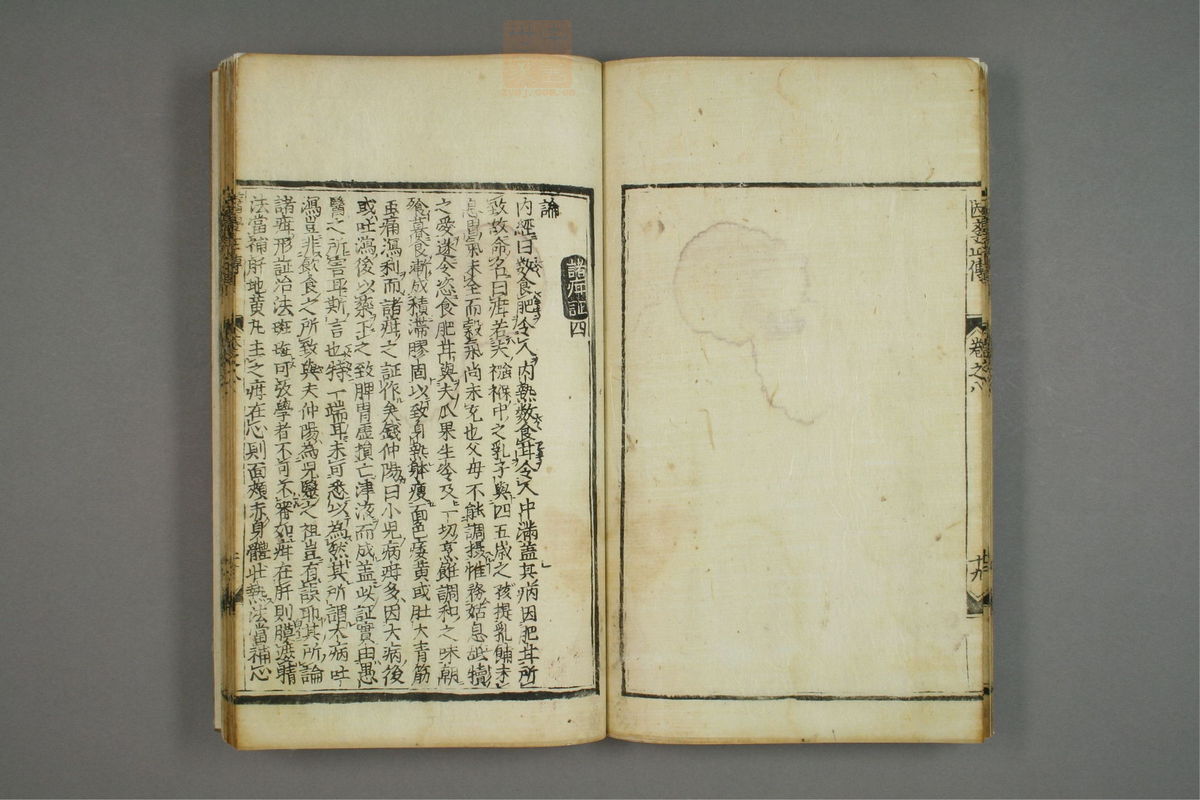 醫學正傳
卷之八
十九
諸疳証四
論
內經曰數食肥令人內熱數食甘令人中滿蓋其病因肥甘所
致故命名曰疳若夫襁褓中之乳子與四五歲之孩提乳餔未
息胃氣未全而穀氣尚未充也父母不能調攝惟務姑息舐犢
之愛遂令恣食肥甘與夫瓜果生冷及一切烹飪調和之味朝
飱暮食漸成積滯膠固以致身熱躰瘦面色痿黃或肚大青筋
虫痛瀉利而諸疳之証作矣錢仲陽曰小児病疳多因大病後
或吐瀉後以藥正之致脾胃虛損亡津液而成蓋此証實由愚
醫之所害耳斯言也特一端耳未可悉以為然其所謂大病吐
瀉豈非飲食之所致與夫仲陽為児醫之祖豈有誤耶其所論
諸疳形証治法班班可攷學者不可不審如疳在肝則膜遮睛
法當補肝地黃丸主之疳在心則面頰赤身體壯熱法當補心